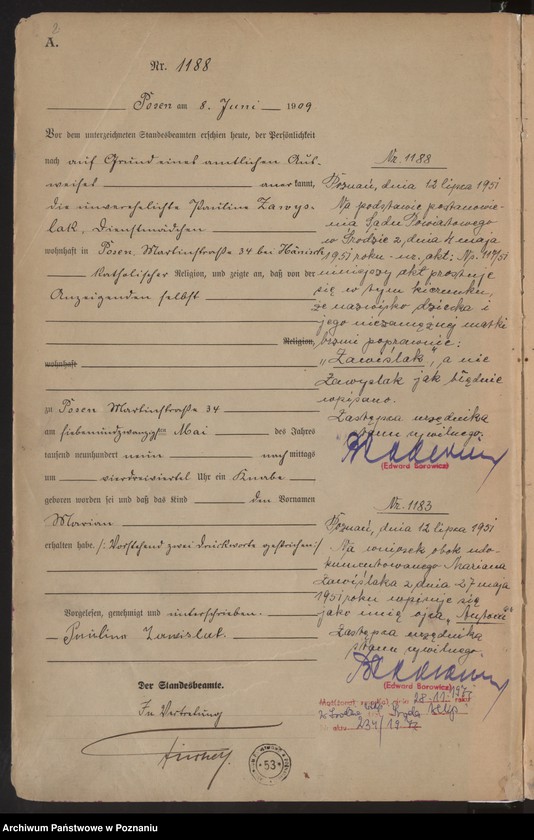 A.
Nr. 1188
Posen am 8. Juni 1909
Vor dem unterzeichneten Standesbeamten erschien heute, der Persönlichkeit
nach auf Grund eines amtlichen Aus-
weises anerkannt,
die unverehelichte Pauline Zawys-
lak, Dienstmädchen
wohnhaft in Posen, Martinstraße 34 bei
katholischer Religion, und zeigte an, daß von der
Anzeigenden selbst
Religion,
wohnhaft
zu Posen Martinstraße 34
am siebenundzwanzigsten Mai des Jahres
tausend neunhundert neun nachmittags
um vierdreiviertel Uhr ein Knabe
geboren worden sei und daß das Kind den Vornamen
Marian
erhalten habe. /: Vorstehend zwei Druckworte gestrichen :/
Vorgelesen, genehmigt und unterschrieben.
Paulina Zawislak.
Der Standesbeamte.
In Vertretung
53
Nr. 1188
Poznań, dnia 12 lipca 1951
Na podstawie postanowie-
nia Sądu Powiatowego
w Środzie z dnia 4 maja
1951 roku - nr. akt: Np. 117/51
niniejszy akt prostuje
się w tym kierunku,
że nazwisko dziecka i
jego niezamężnej matki
brzmi poprawnie:
"Zawiślak", a nie
Zawyslak jak błędnie
wpisano.
Zastępca urzędnika
stanu cywilnego.
(Edward Borowicz)
Nr. 1183
Poznań, dnia 12 lipca 1951
Na wniosek obok udo-
kumentowanego Mariana
Zawiślaka z dnia 27 maja
1951 roku wpisuje się
jako imię ojca "Antoni"
Zastępca urzędnika
stanu cywilnego.
(Edward Borowicz)
28.11.1977
w Środzie Wlkp
234/1977
Archiwum Państwowe w Poznaniu